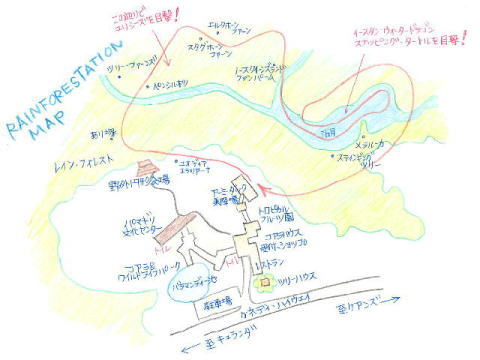 この辺りで
ユリシーズを目撃!
エルクホーン
ファーン
スタグホーン
ファーン
イースタン・ウォータードラゴン
スナッピング・タートルを目撃!
ツリー・ファーンズ
ペンシルギリ
ノースクイーンズランド
ファンパーム
RAINFORESTATION
MAP
あり塚
メラルーカ
スティンギング
ツリー
レイン・フォレスト
ユオディア
エラリアーナ
野外ダンス会場
アーミーダック
乗降場
トロピカル
フルーツ園
パマギリ
文化センター
トイレ
コアラハウス
受付・ショップ
コアラ&
ワイルドライフパーク
トイレ
レストラン
バラマンディ池
ツリーハウス
駐車場
ケネディ・ハイウェイ
至ケアンズ
至キュランダ